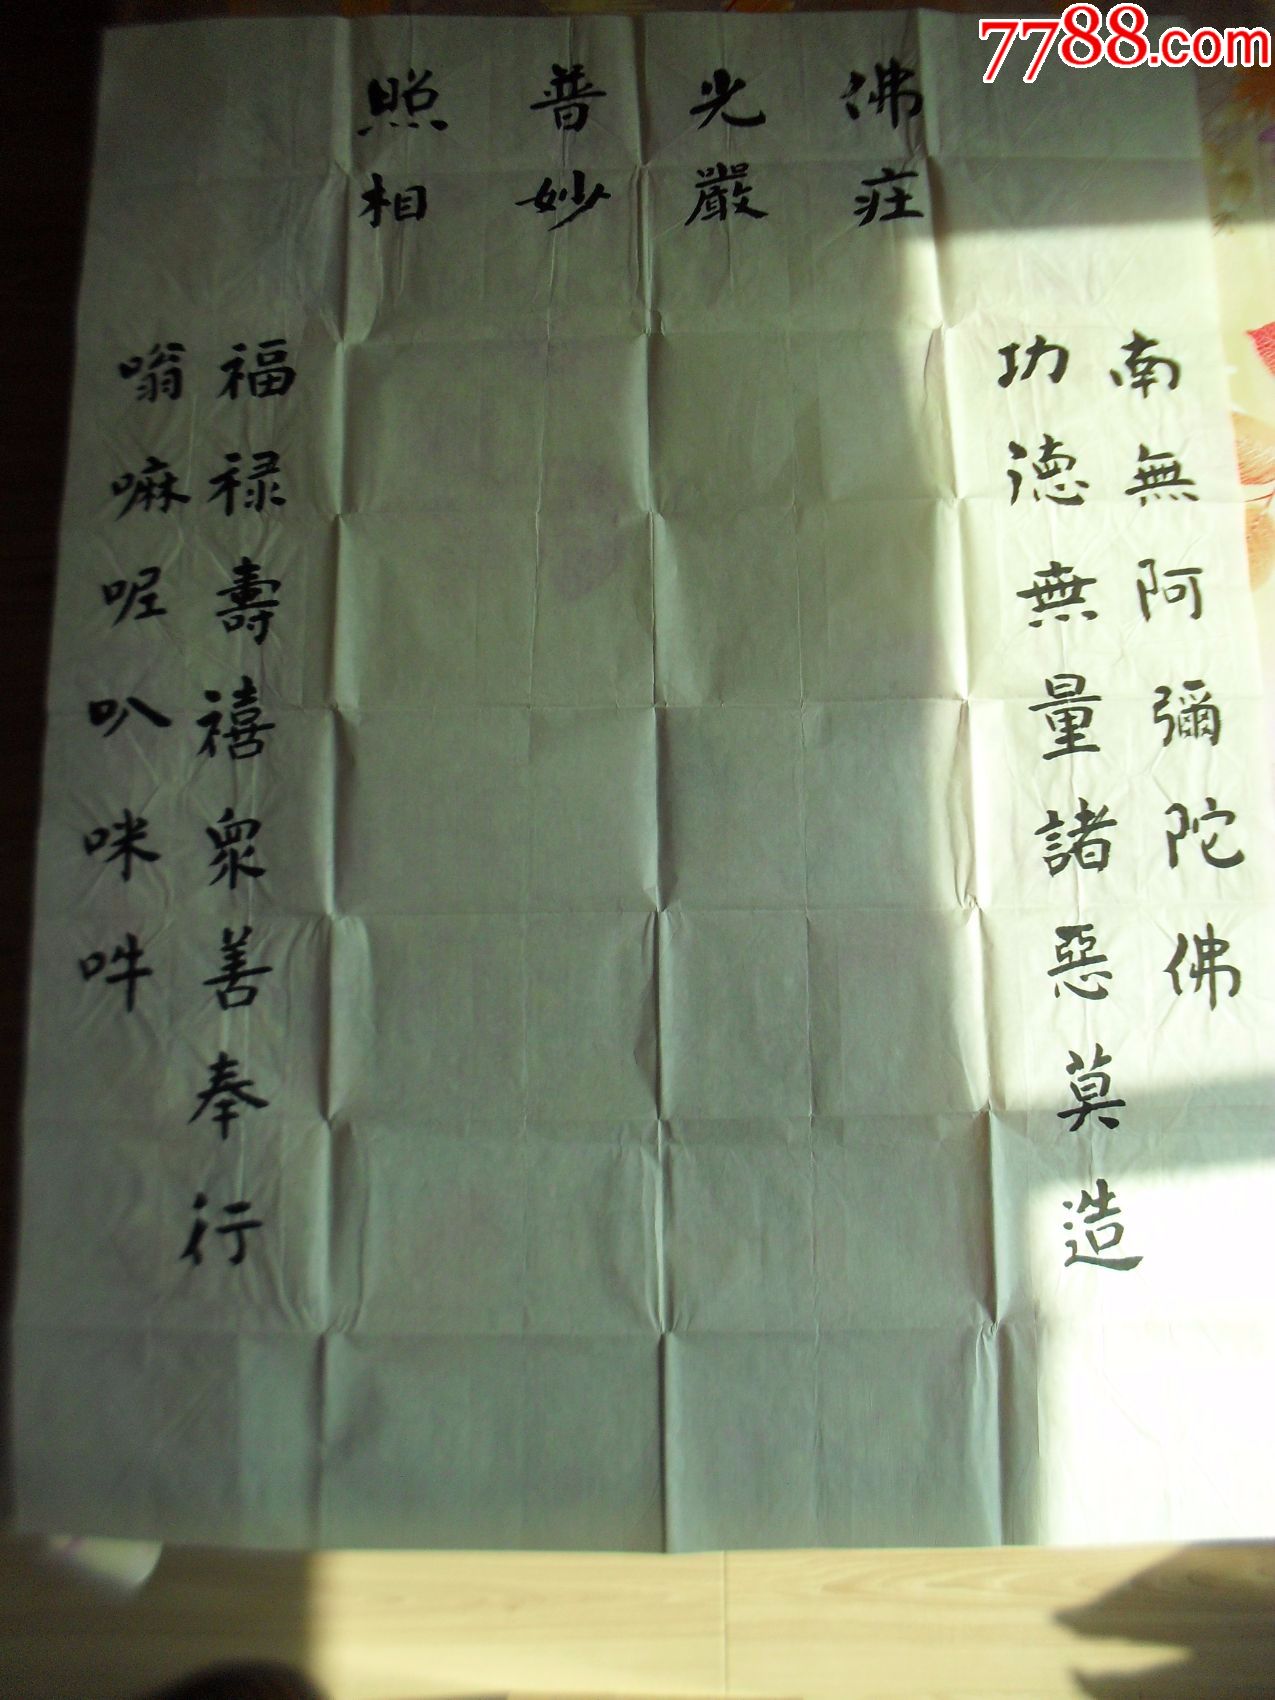 7788.com
佛光普照
庄嚴妙相
南無阿彌陀佛
功德無量諸惡莫造
福禄壽禧眾善奉行
嗡嘛呢叭咪吽